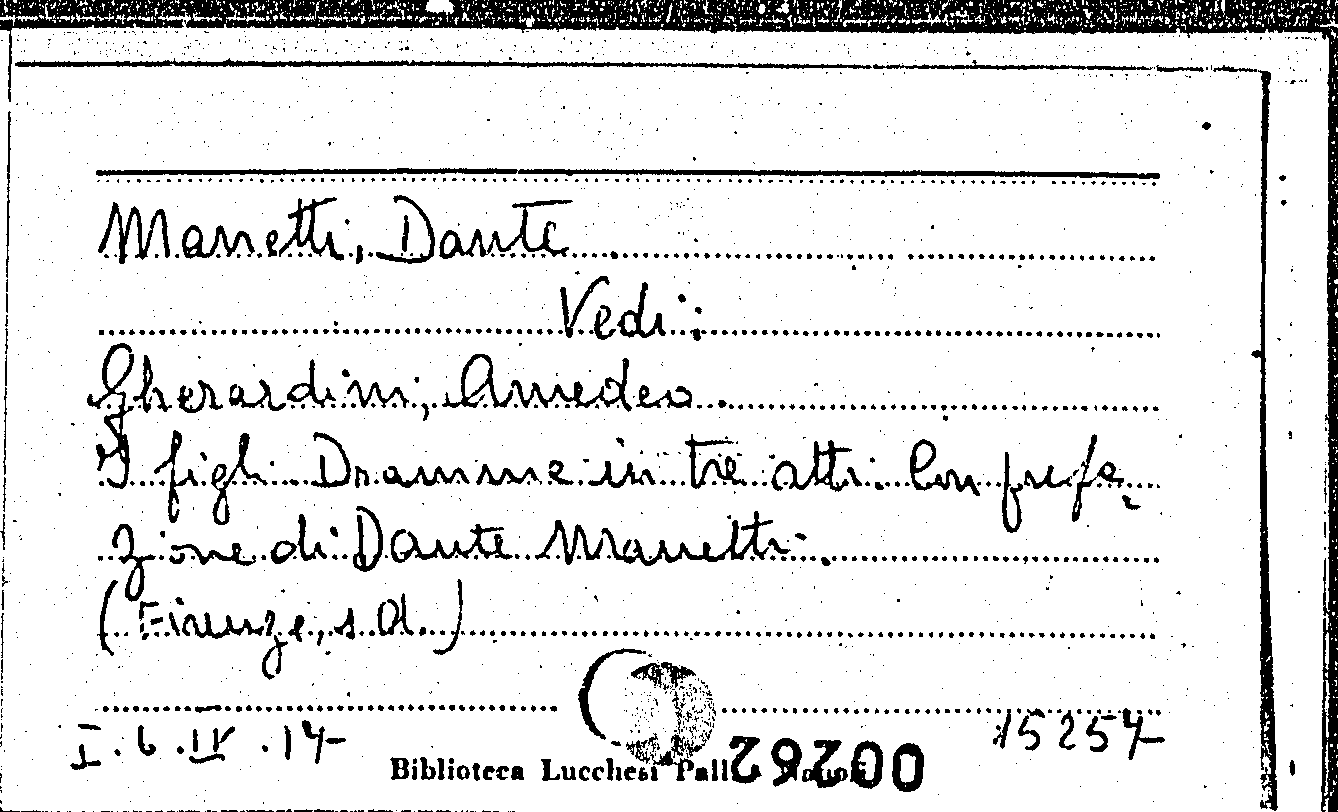 Manetti, Dante
Vedi:
Gherardini, Amedeo.
I figli. Dramma in tre atti. Con prefa=
zione di Dante Manetti.
(Firenze, s.d.)
I.6.IV.14
15254
Biblioteca Lucchesi Palli
00262